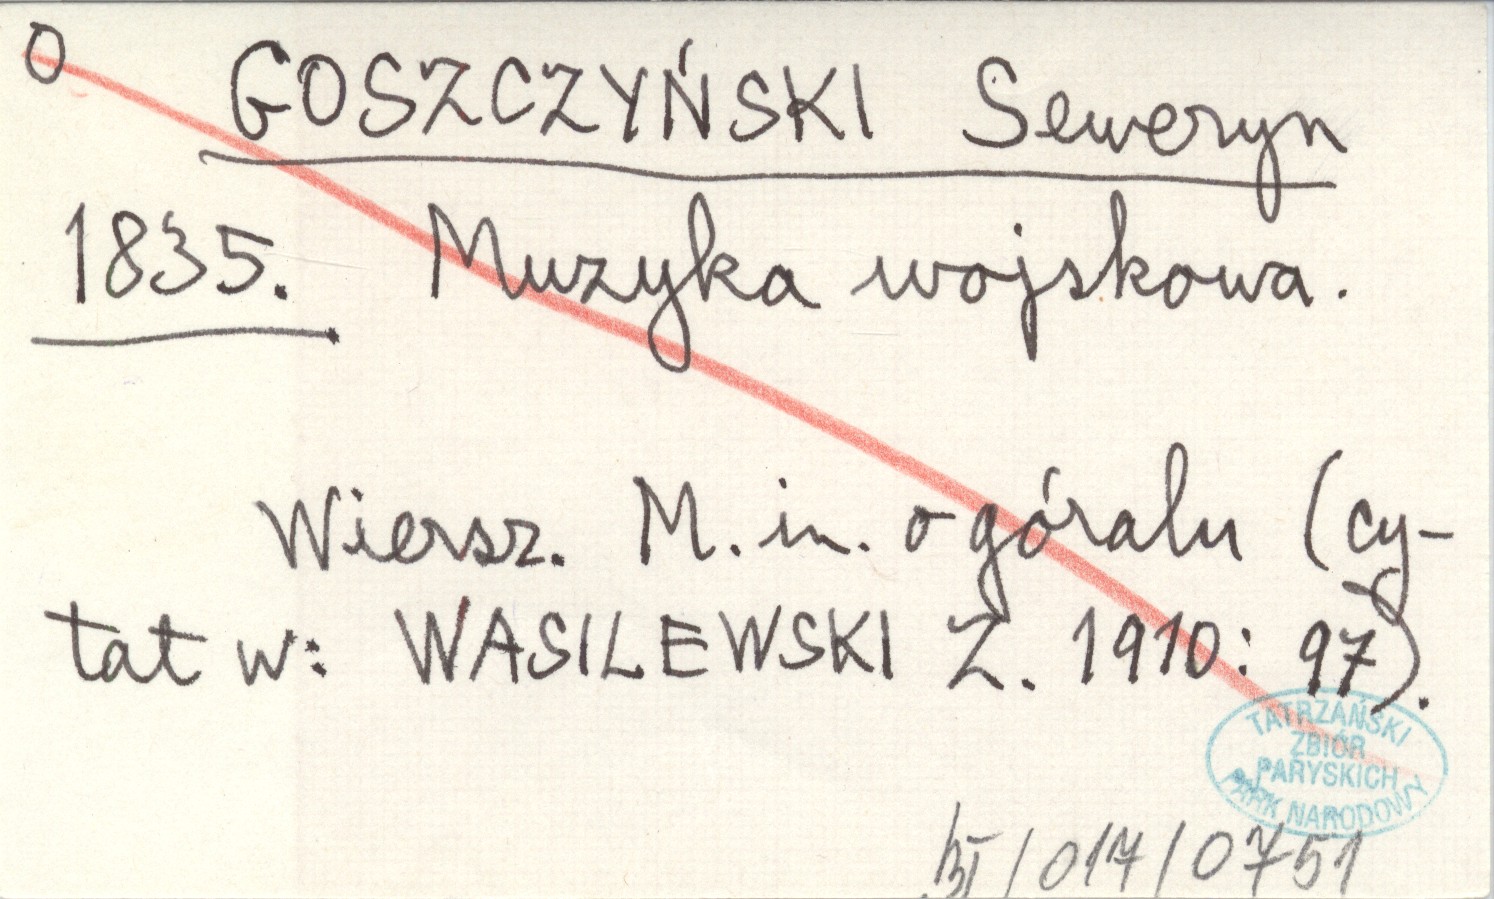 O
GOSZCZYŃSKI Seweryn
1835. Muzyka wojskowa.
Wiersz. M. in. o góralu (cy-
tat w: WASILEWSKI Z. 1910: 97).
TATRZAŃSKI
ZBIÓR
PARYSKICH
PARK NARODOWY
/017/0751